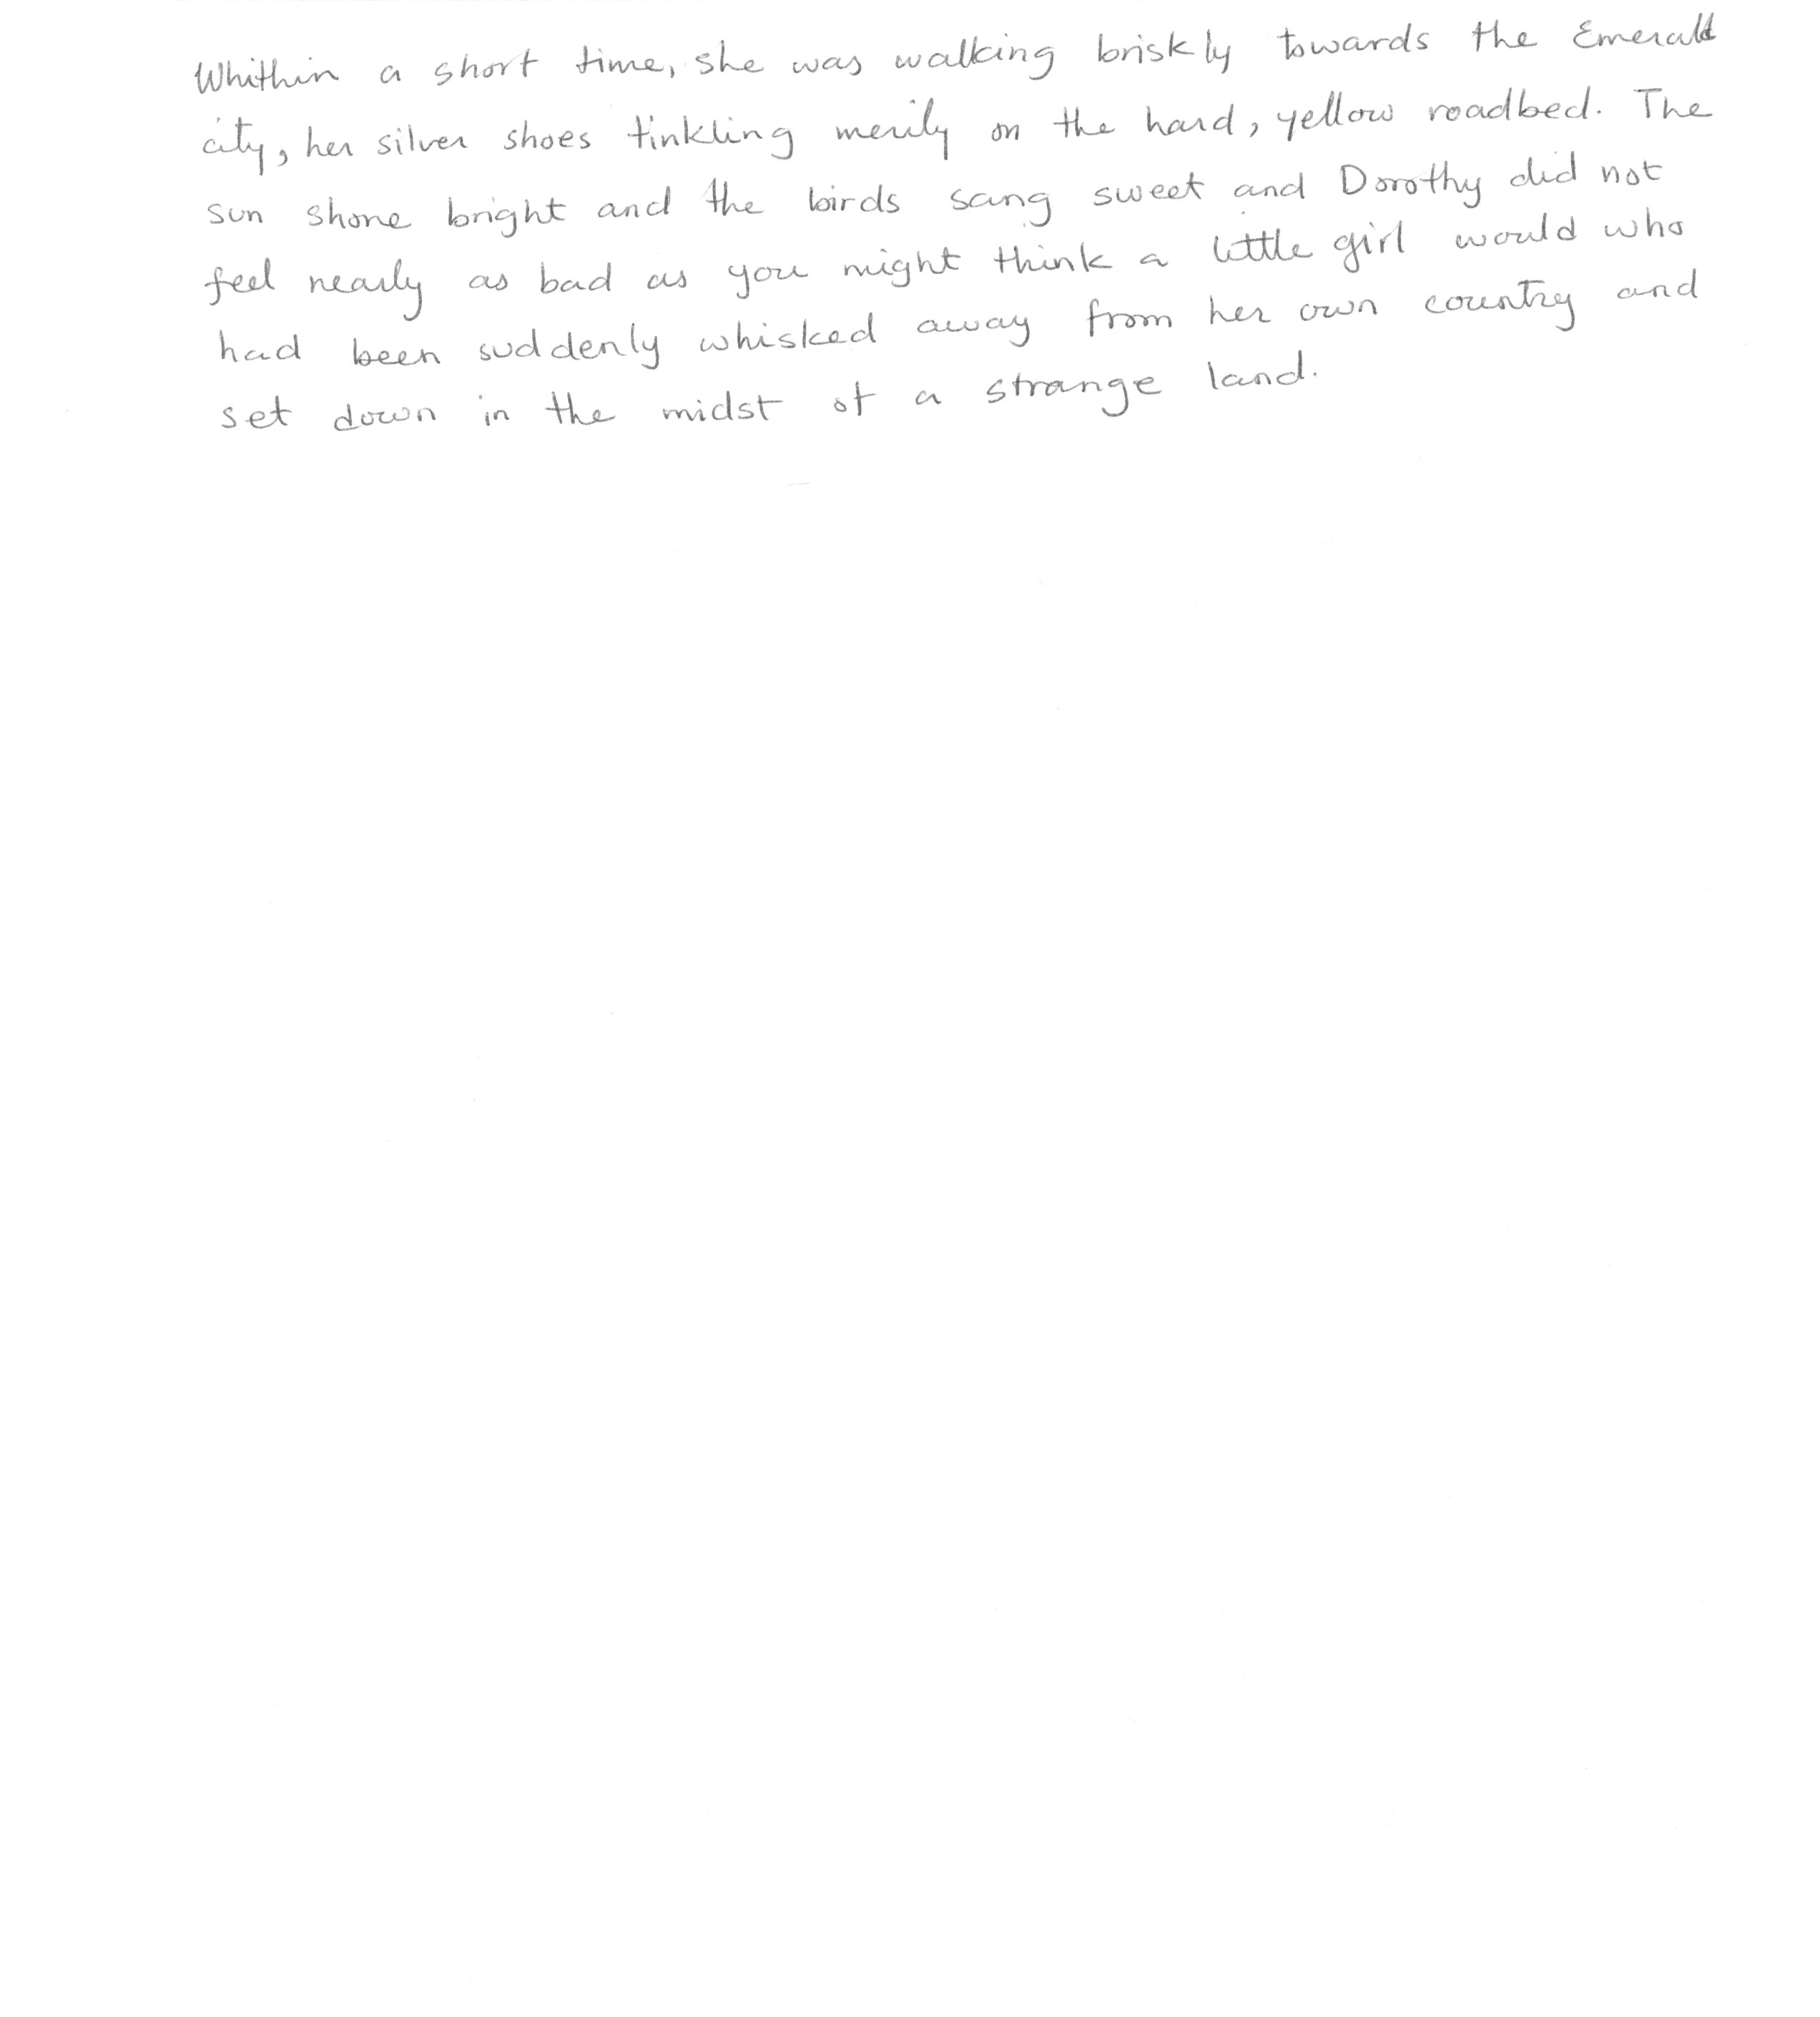 Whithin a short time, she was walking briskly towards the Emerald
city, her silver shoes tinkling merily on the hard, yellow roadbed. The
sun shone bright and the birds sang sweet and Dorothy did not
feel nearly as bad as you might think a little girl would who
had been suddenly whisked away from her own country and
set down in the midst of a strange land.